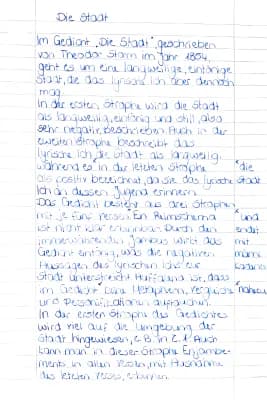 Die Stadt
Im Gedicht „Die Stadt", geschrieben
von Theodor Storm im Jahr 1854,
geht es um eine langweilige, eintönige
Stadt, die das lyrische Ich aber dennoch
mag.
In der ersten Strophe wird die Stadt
als langweilig, eintönig und still, also
sehr negativ, beschrieben. Auch in der
zweiten Strophe beschreibt das
lyrische Ich die Stadt als langweilig,
während es in der letzten Strophe *die
als positiv bezeichnet, da sie das lyrische Stadt
Ich an dessen Jugend erinnern
Das Gedicht besteht aus drei Strophen
mit je fünf Versen. Ein Reimschema *und
ist nicht klar erkennbar. Durch den endet
immerwährenden Jambus wirkt das mit
Gedicht eintönig, was die negativen männl.
Aussagen des lyrischen Ichs zur Kadenz
Stadt unterstreicht. Auffallend ist, dass
im Gedicht Metaphern, Vergleiche *nahezu
und Personifikationen auftauchen.
In der ersten Strophe des Gedichtes
wird viel auf die Umgebung der
Stadt hingewiesen, z.B. in Auch
kann man in dieser Strophe Enjambe-
ments in allen Versen, mit Ausnahme
des letzten Verses, erkennen.